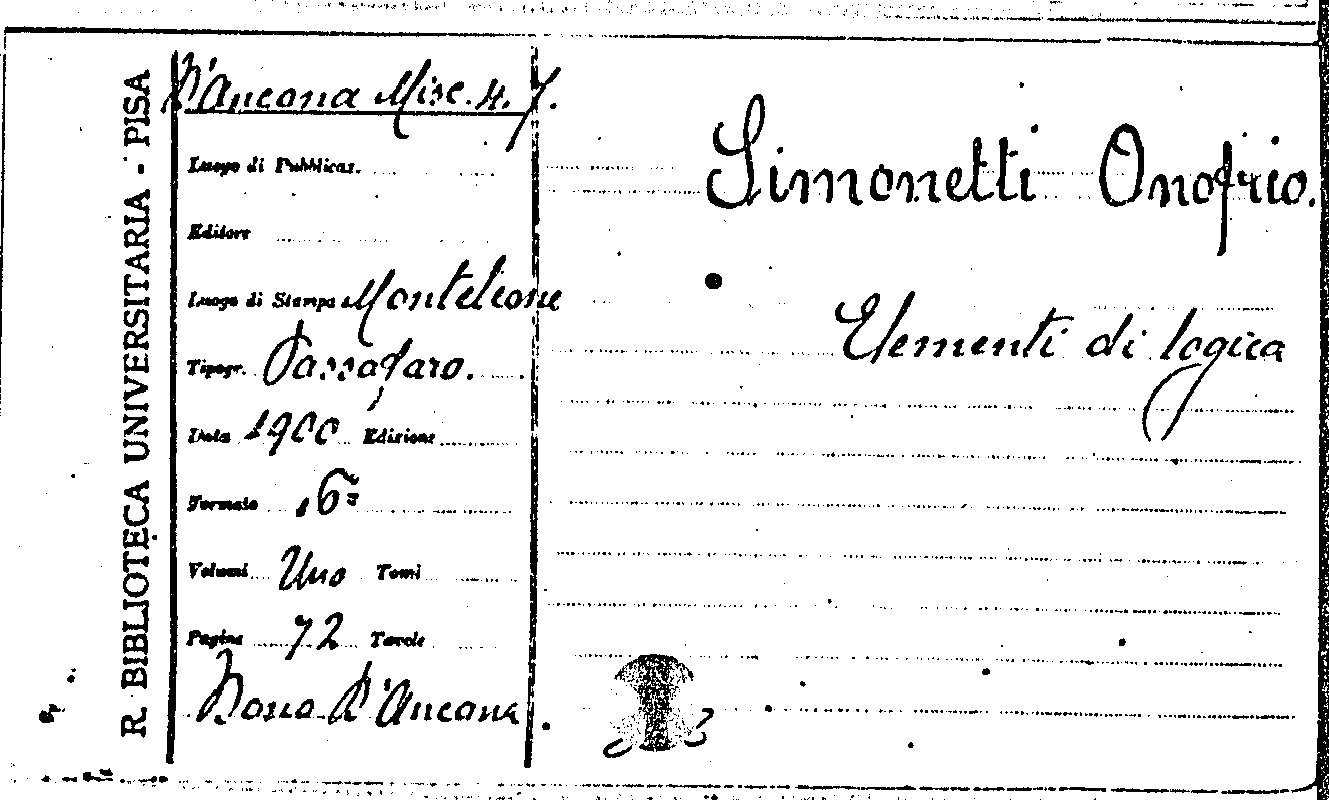 R. BIBLIOTECA UNIVERSITARIA - PISA
D'Ancona Misc. 4. 7.
Luogo di Pubblicaz.
Editore
Luogo di Stampa Monteleone
Tipogr. Passafaro.
Data 1900 Edizione
Formato 16°
Volumi Uno Tomi
Pagine 72 Tavole
Dono D'Ancona.
Simonetti Onofrio.
Elementi di logica